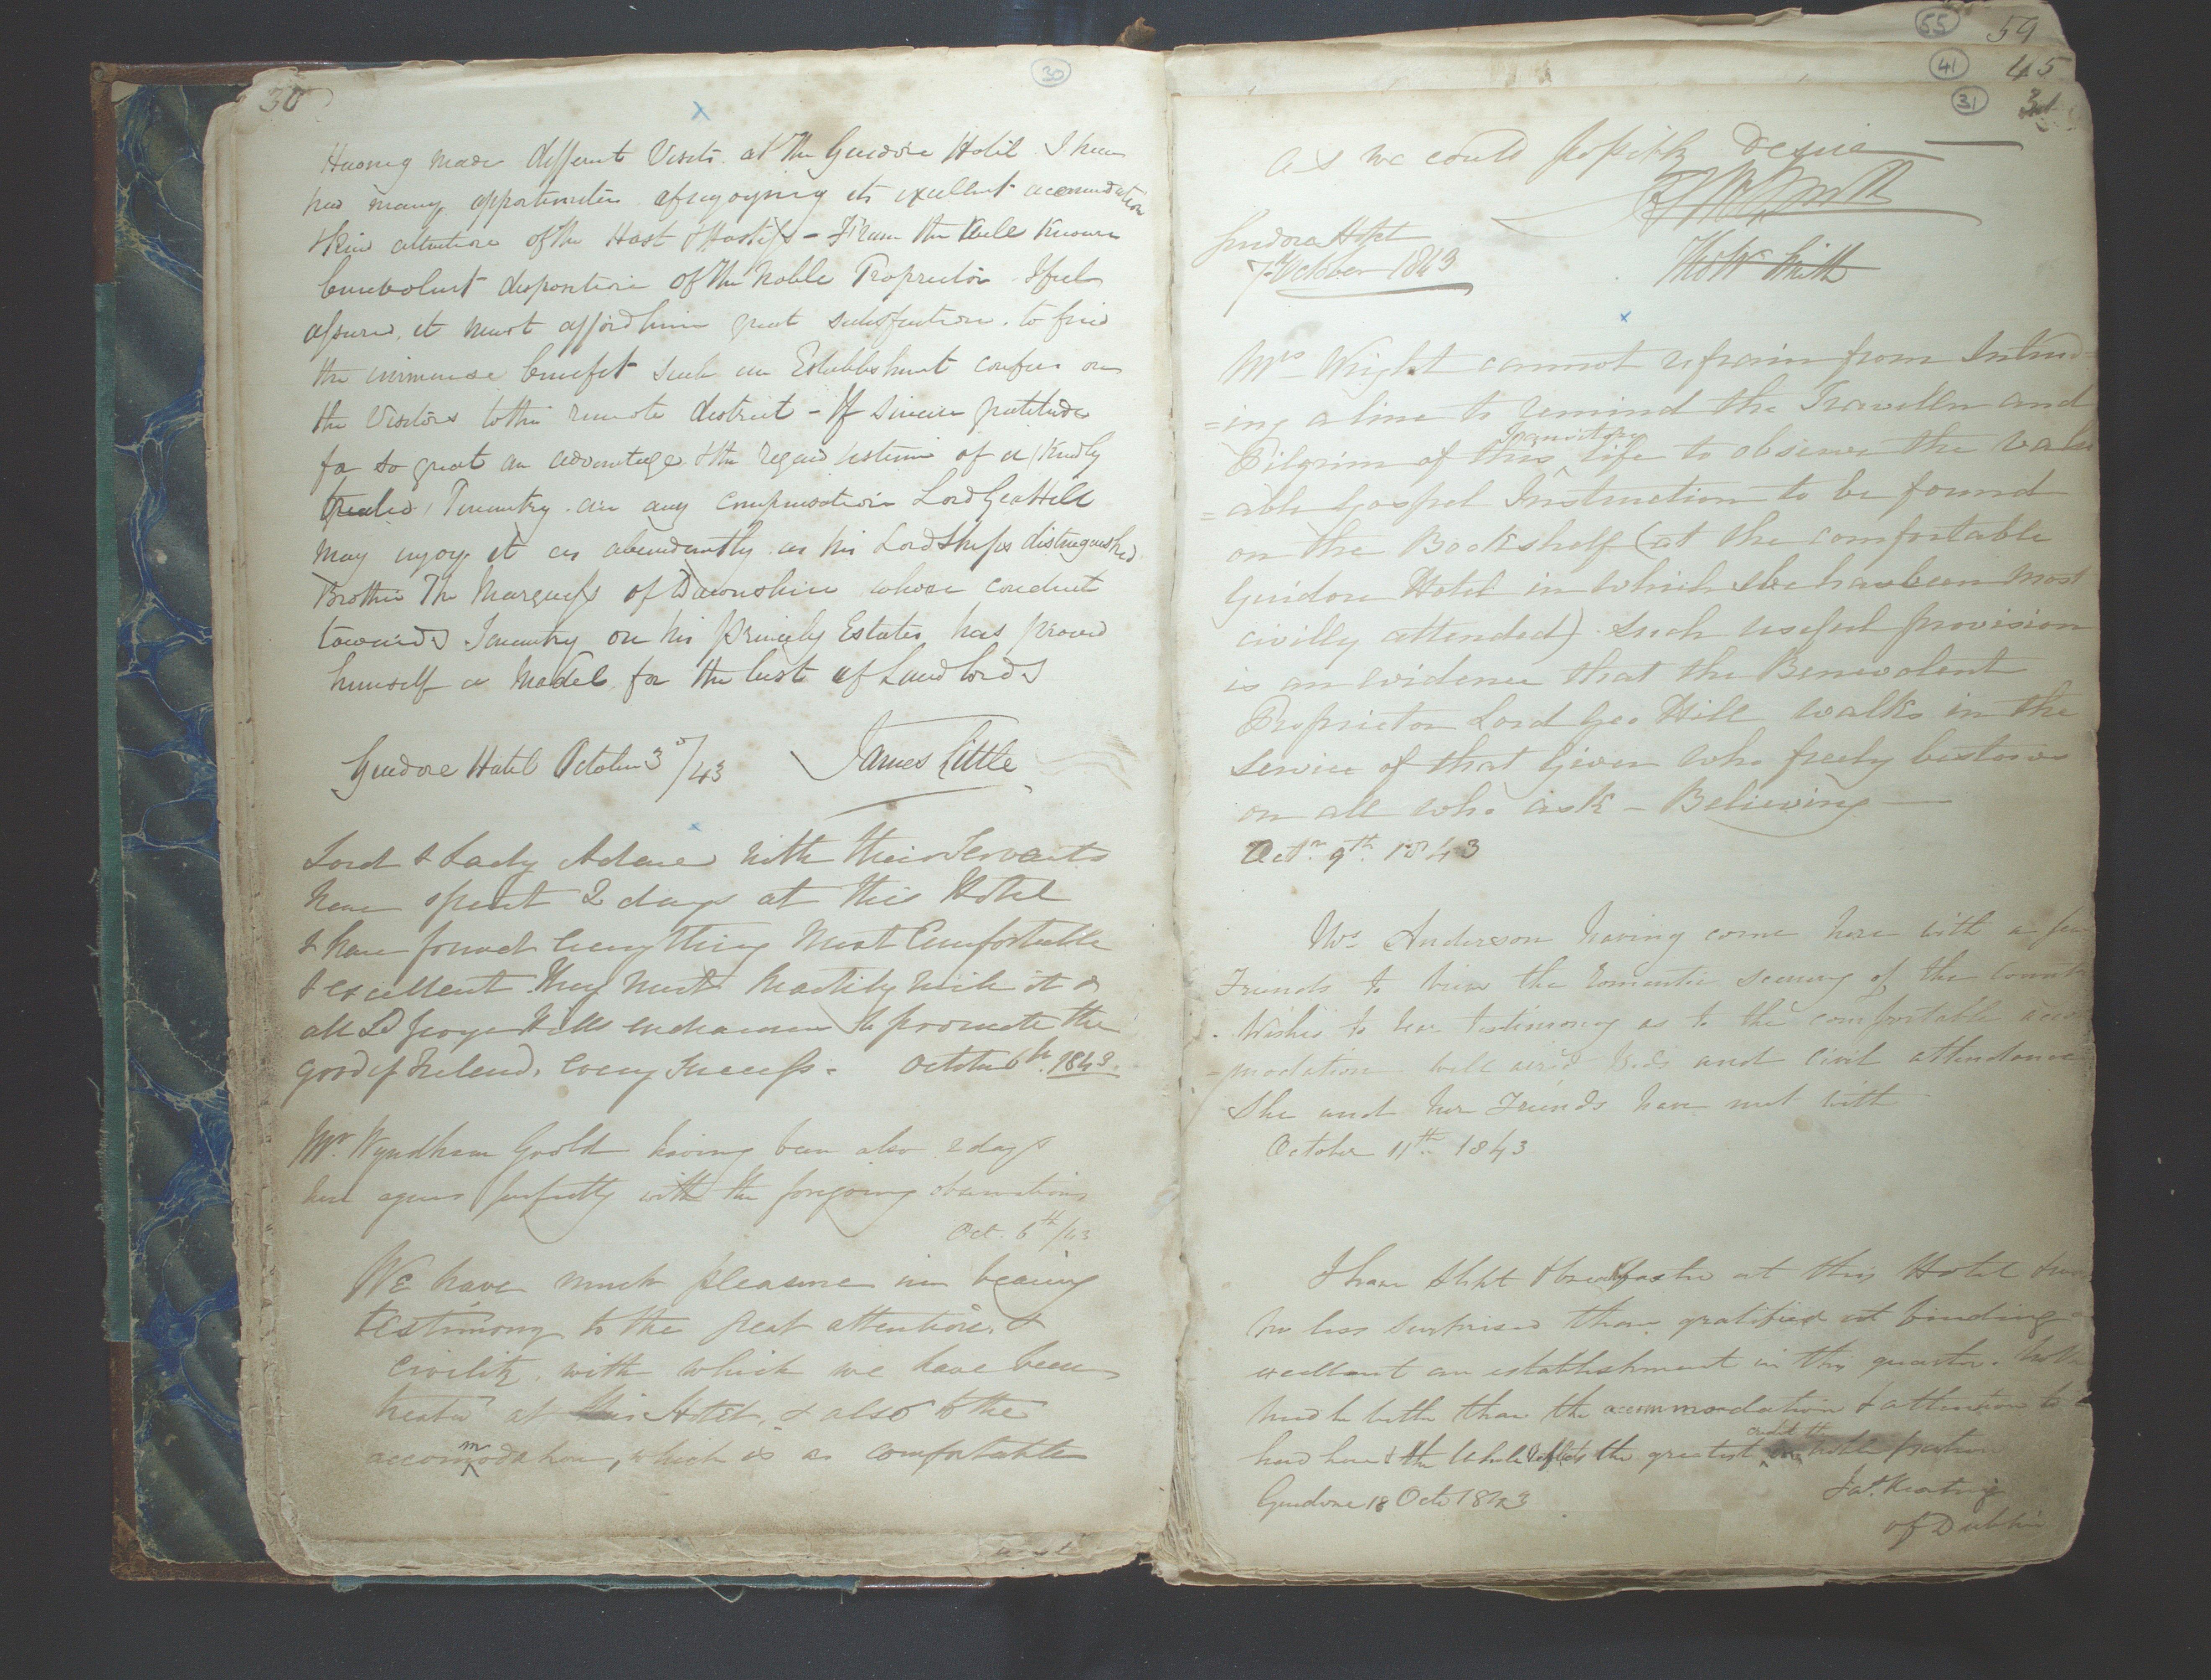 30
30
Having made different Visits at the Guidore Hotel I have
had many opportunities of enjoying its excellent accomodation
& kind attention of the Host & Hostess - From the well known
benevolent disposition of the Noble Proprietor I feel
assured, it must afford him great satisfaction to find
the immense benefit such an Establishment confers on
the Visitors to this remote district - If sincere gratitude
for so great an advantage & the regard & esteem of a Kindly
treated Tenantry are any compensation Lord Geo Hill
may enjoy it as abundantly as his Lordships distinguished
Brother The Marquess of Downshire whose conduct
towards Tenantry on his princely Estates has proved
himself a Model for the best of Landlords
Guidore Hotel October 3d/43 James Little
Lord & Lady Adare with their Servants
have spent 2 days at this Hotel
& have found everything most Comfortable
& excellent They most heartily wish it &
all Ld George Hills endeavours to promote the
good of Ireland, every success. October 6th. 1843.
Mr. Wyndham Goold having been also 2 days
here agrees perfectly with the foregoing observations
Oct. 6th/43
We have much pleasure in bearing
testimony to the great attention &
civility with which we have been
treated at this Hotel, & also to the
accommodation, which is as comfortable
55 59
41 45
31 31
as we could possibly desire
Guidore Hotel
7th October 1843
Thos W Smith
Mrs Wright cannot refrain from Intrud=
=ing a line to remind the Traveller and
Pilgrim of this Transitory life to observe the valu
=able Gospel Instruction to be found
on the Bookshelf (at the comfortable
Guidore Hotel in which she has been most
civilly attended) Such useful provision
is an evidence that the Benevolent
Proprietor Lord Geo Hill walks in the
service of that Giver who freely bestows
on all who ask - Believing
Octr. 9th. 1843
Mrs Anderson having come here with a few
Friends to view the romantic scenery of the Count
Wishes to bear testimony as to the comfortable accom
-modation well aired Beds and civil attendance
She and her Friends have met with
October 11th 1843
I have slept & breakfasted at this Hotel & was
no less surprised than gratified at finding
excellent an establishment in this quarter.
could be better than the accommodation & attention to
had here & the whole reflects the greatest credit on the noble
Guidore 18 Octr 1843 Jas. Keating
of Dublin